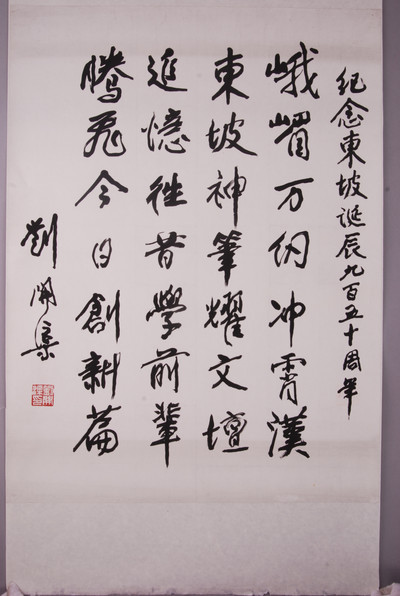 紀念東坡誕辰九百五十周年
峨嵋万仞冲霄漢
東坡神筆耀文壇
追憶往昔學前輩
騰飛今日創新篇
劉開渠